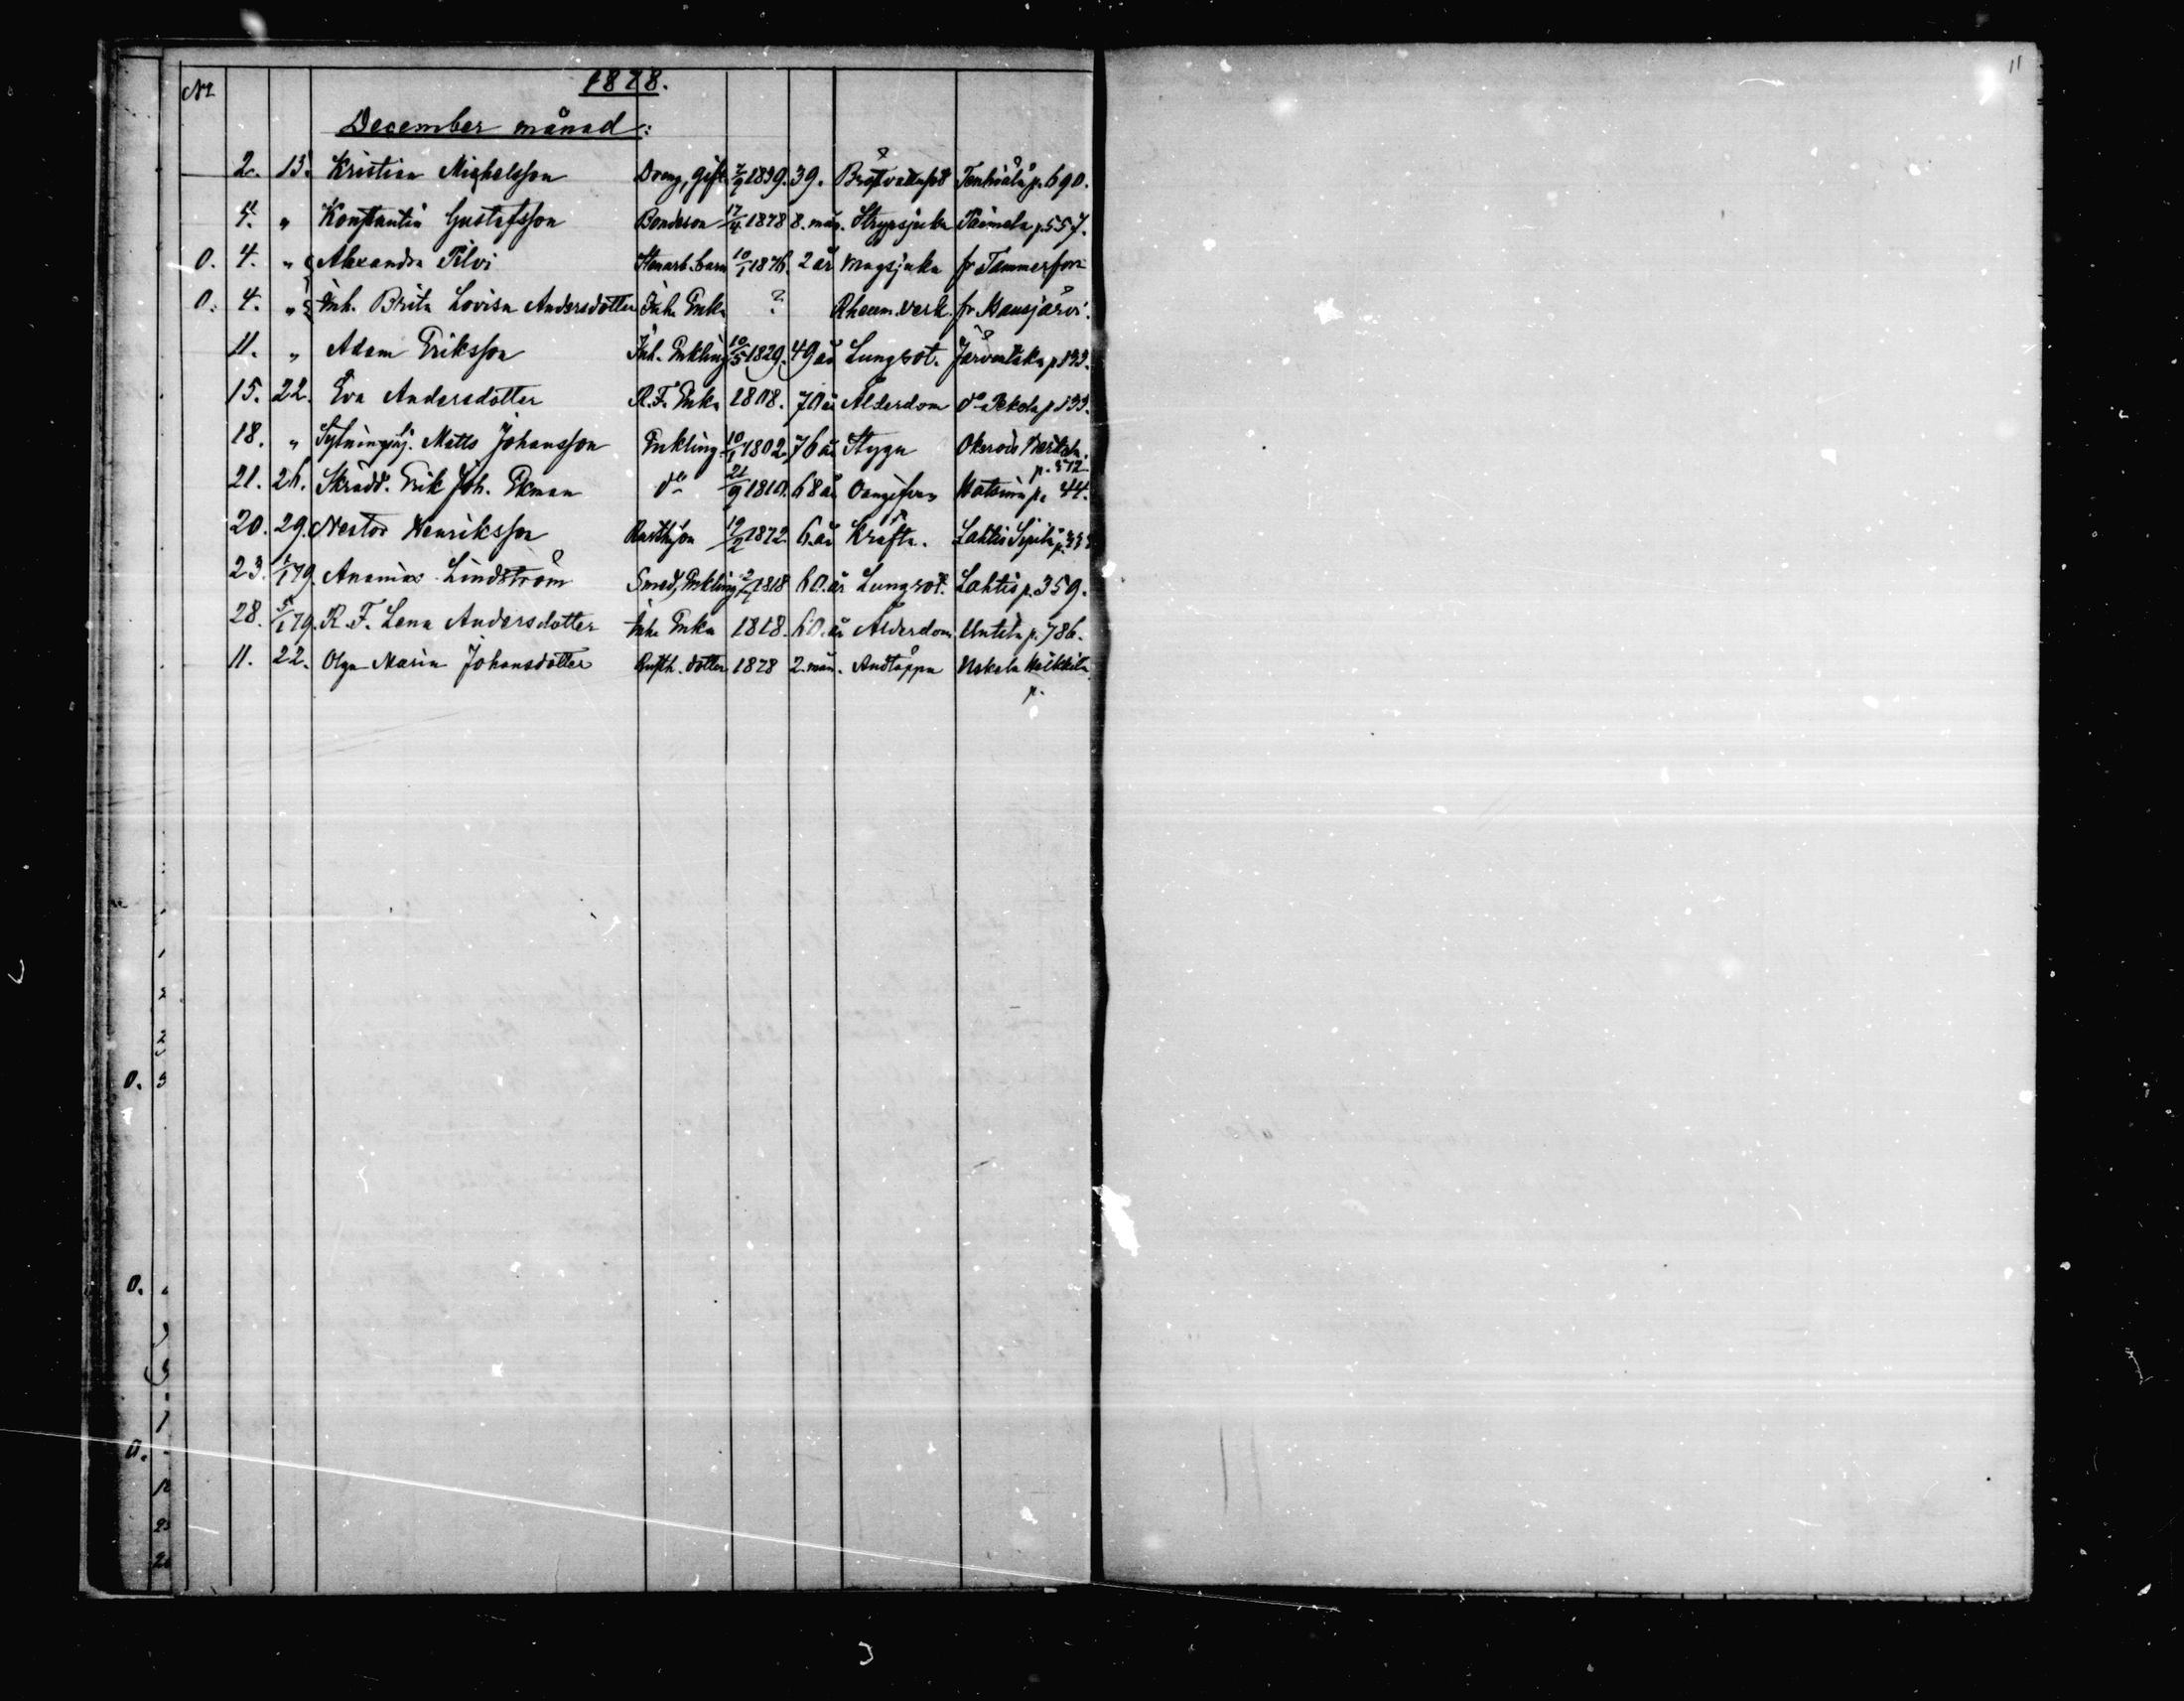 11
No 1878.
December månad:
2. 15. Kristian Michelsson Dreng, gift 7/9 1839. 39. Bröstvattusot Tenhiälä p. 690.
4. " Konstantin Gustafsson Bondeson 17/4 1878 8. mån. Strypsjuka Paimela p. 557.
O. 4. " Alexandra Pilvi Stenarb. barn 10/1 1876. 2 år Magsjuka fr Tammerfors
O. 4. " Inh. Brita Lovisa Andersdotter Inh. Enka ? Rheum. verk. fr Hausjärvi.
11. " Adam Eriksson Inh. Enkling 10/5 1829. 49 år Lungsot. Järventaka p 133.
15. 22. Eva Andersdotter R. F. Enka 1808. 70 år Ålderdom do Pekola p 133.
18. " Sytninghj. Matts Johansson Enkling 10/1 1802. 76 år Stygn Okerois
p. 572
21. 26. Skrädd. Erik Joh. Ekman do 21/9 1810. 68 år Oangifven Hatsina p. 44.
20. 29. Nestor Henriksson Rusthson 19/2 1872. 6. år Kräfta. Lahtis Sipilä
23. 1/1 79. Ananias Lindström Smed, Enkling 2/1 1818 60. år Lungsot. Lahtis p. 359.
28. 5/1 79. R. F. Lena Andersdotter Inh. Enka 1818. 60. år Ålderdom Untila p. 786.
11. 22. Olga Maria Johansdotter Rusth. dotter 1878 2. mån. Andtäppa Uskela Heikkilä
p.
O. 3
O.
O.